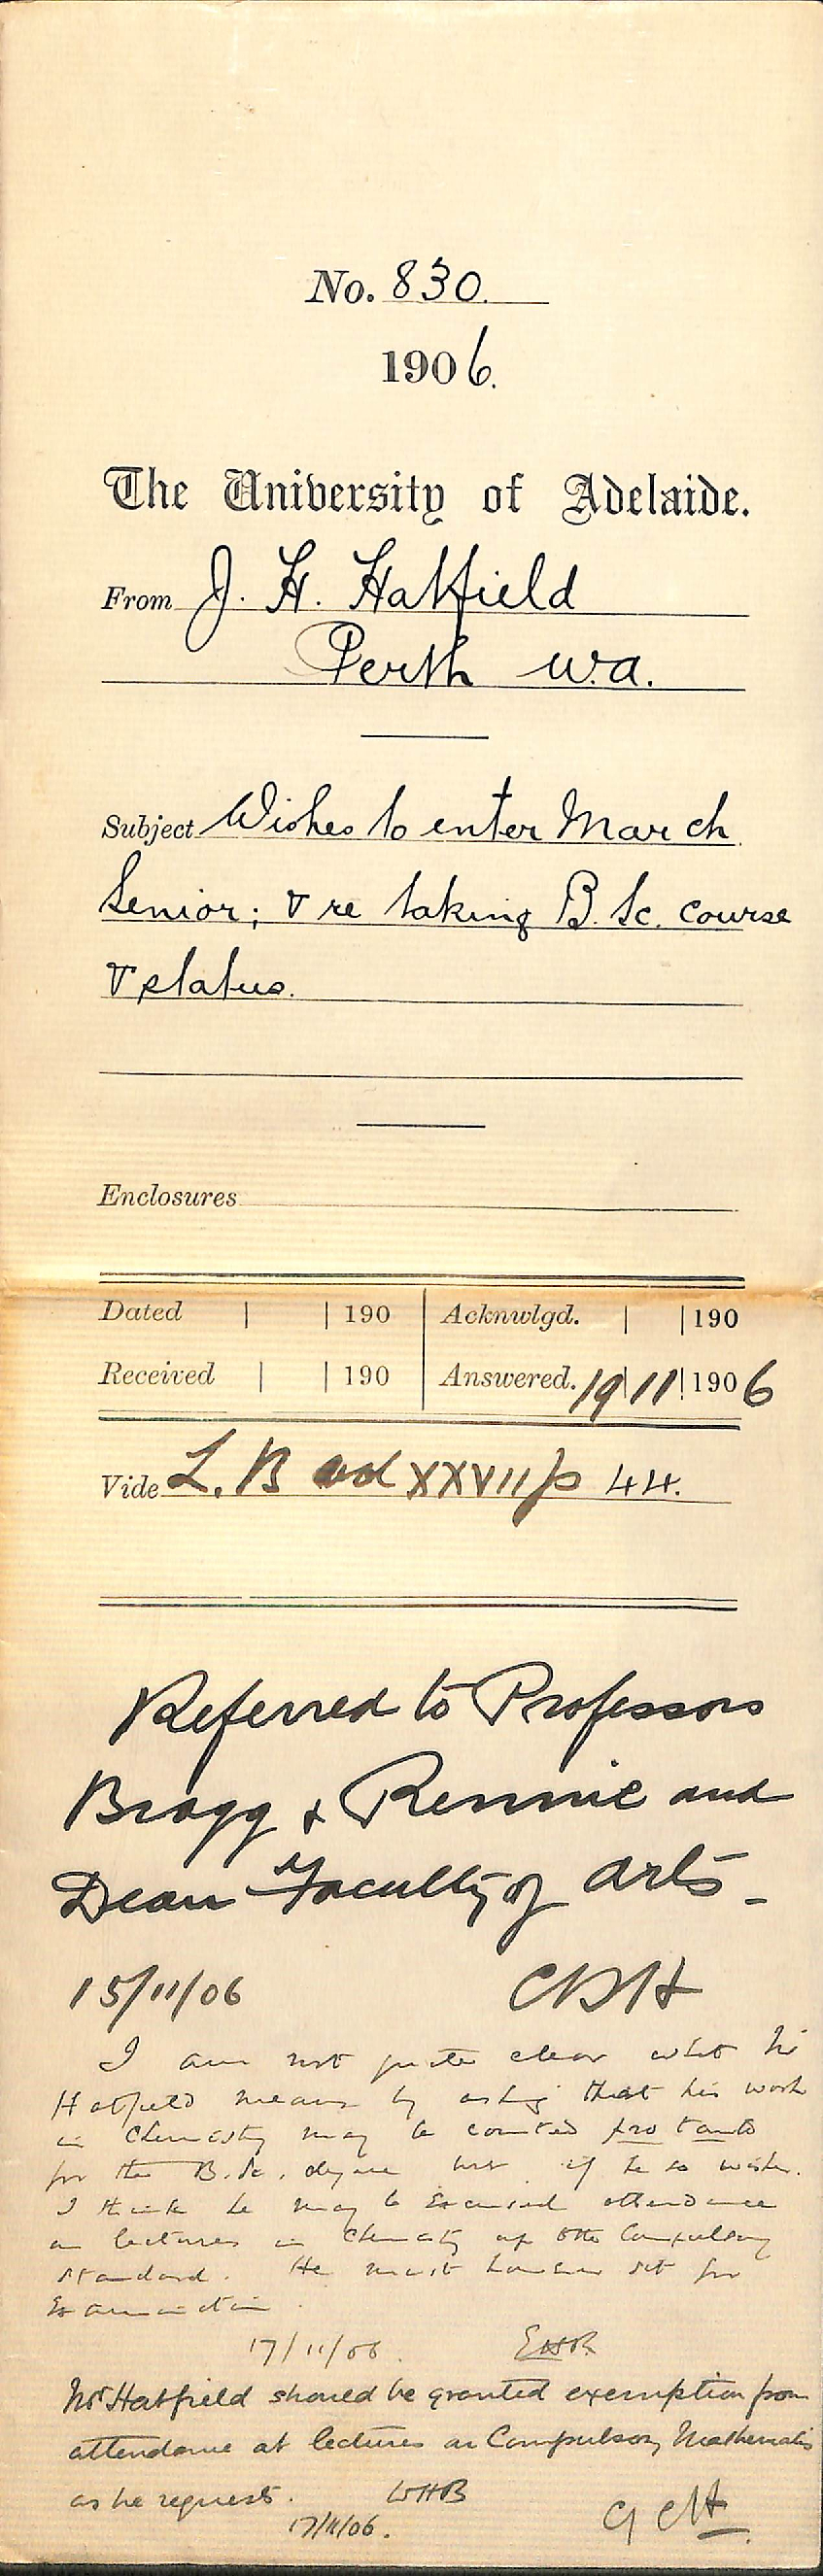 No. 830.
1906.
The University of Adelaide.
From J. H. Hatfield
Perth W.A.
Subject Wishes to enter March
Senior; & re taking B.Sc. course
& status.
Enclosures
Dated | | 190 | Acknwlgd. | | 190
Received | | 190 | Answered. 19|11|1906
Vide L. B vol XXVII p 44.
Referred to Professors
Bragg & Rennie and
Dean Faculty of Arts -
15/11/06 CRH
I am not quite clear what Mr
Hatfield means by asking that his work
in Chemistry may be counted pro tanto
for the B.Sc. degree but if he so wishes
I think he may be excused attendance
on lectures in Chemistry up to the Compulsory
standard. He must however sit for
Examination.
17/11/06. EHR
Mr Hatfield should be granted exemption from
attendance at lectures on Compulsory Mathematics
as he requests. WHB
17/11/06. GCH